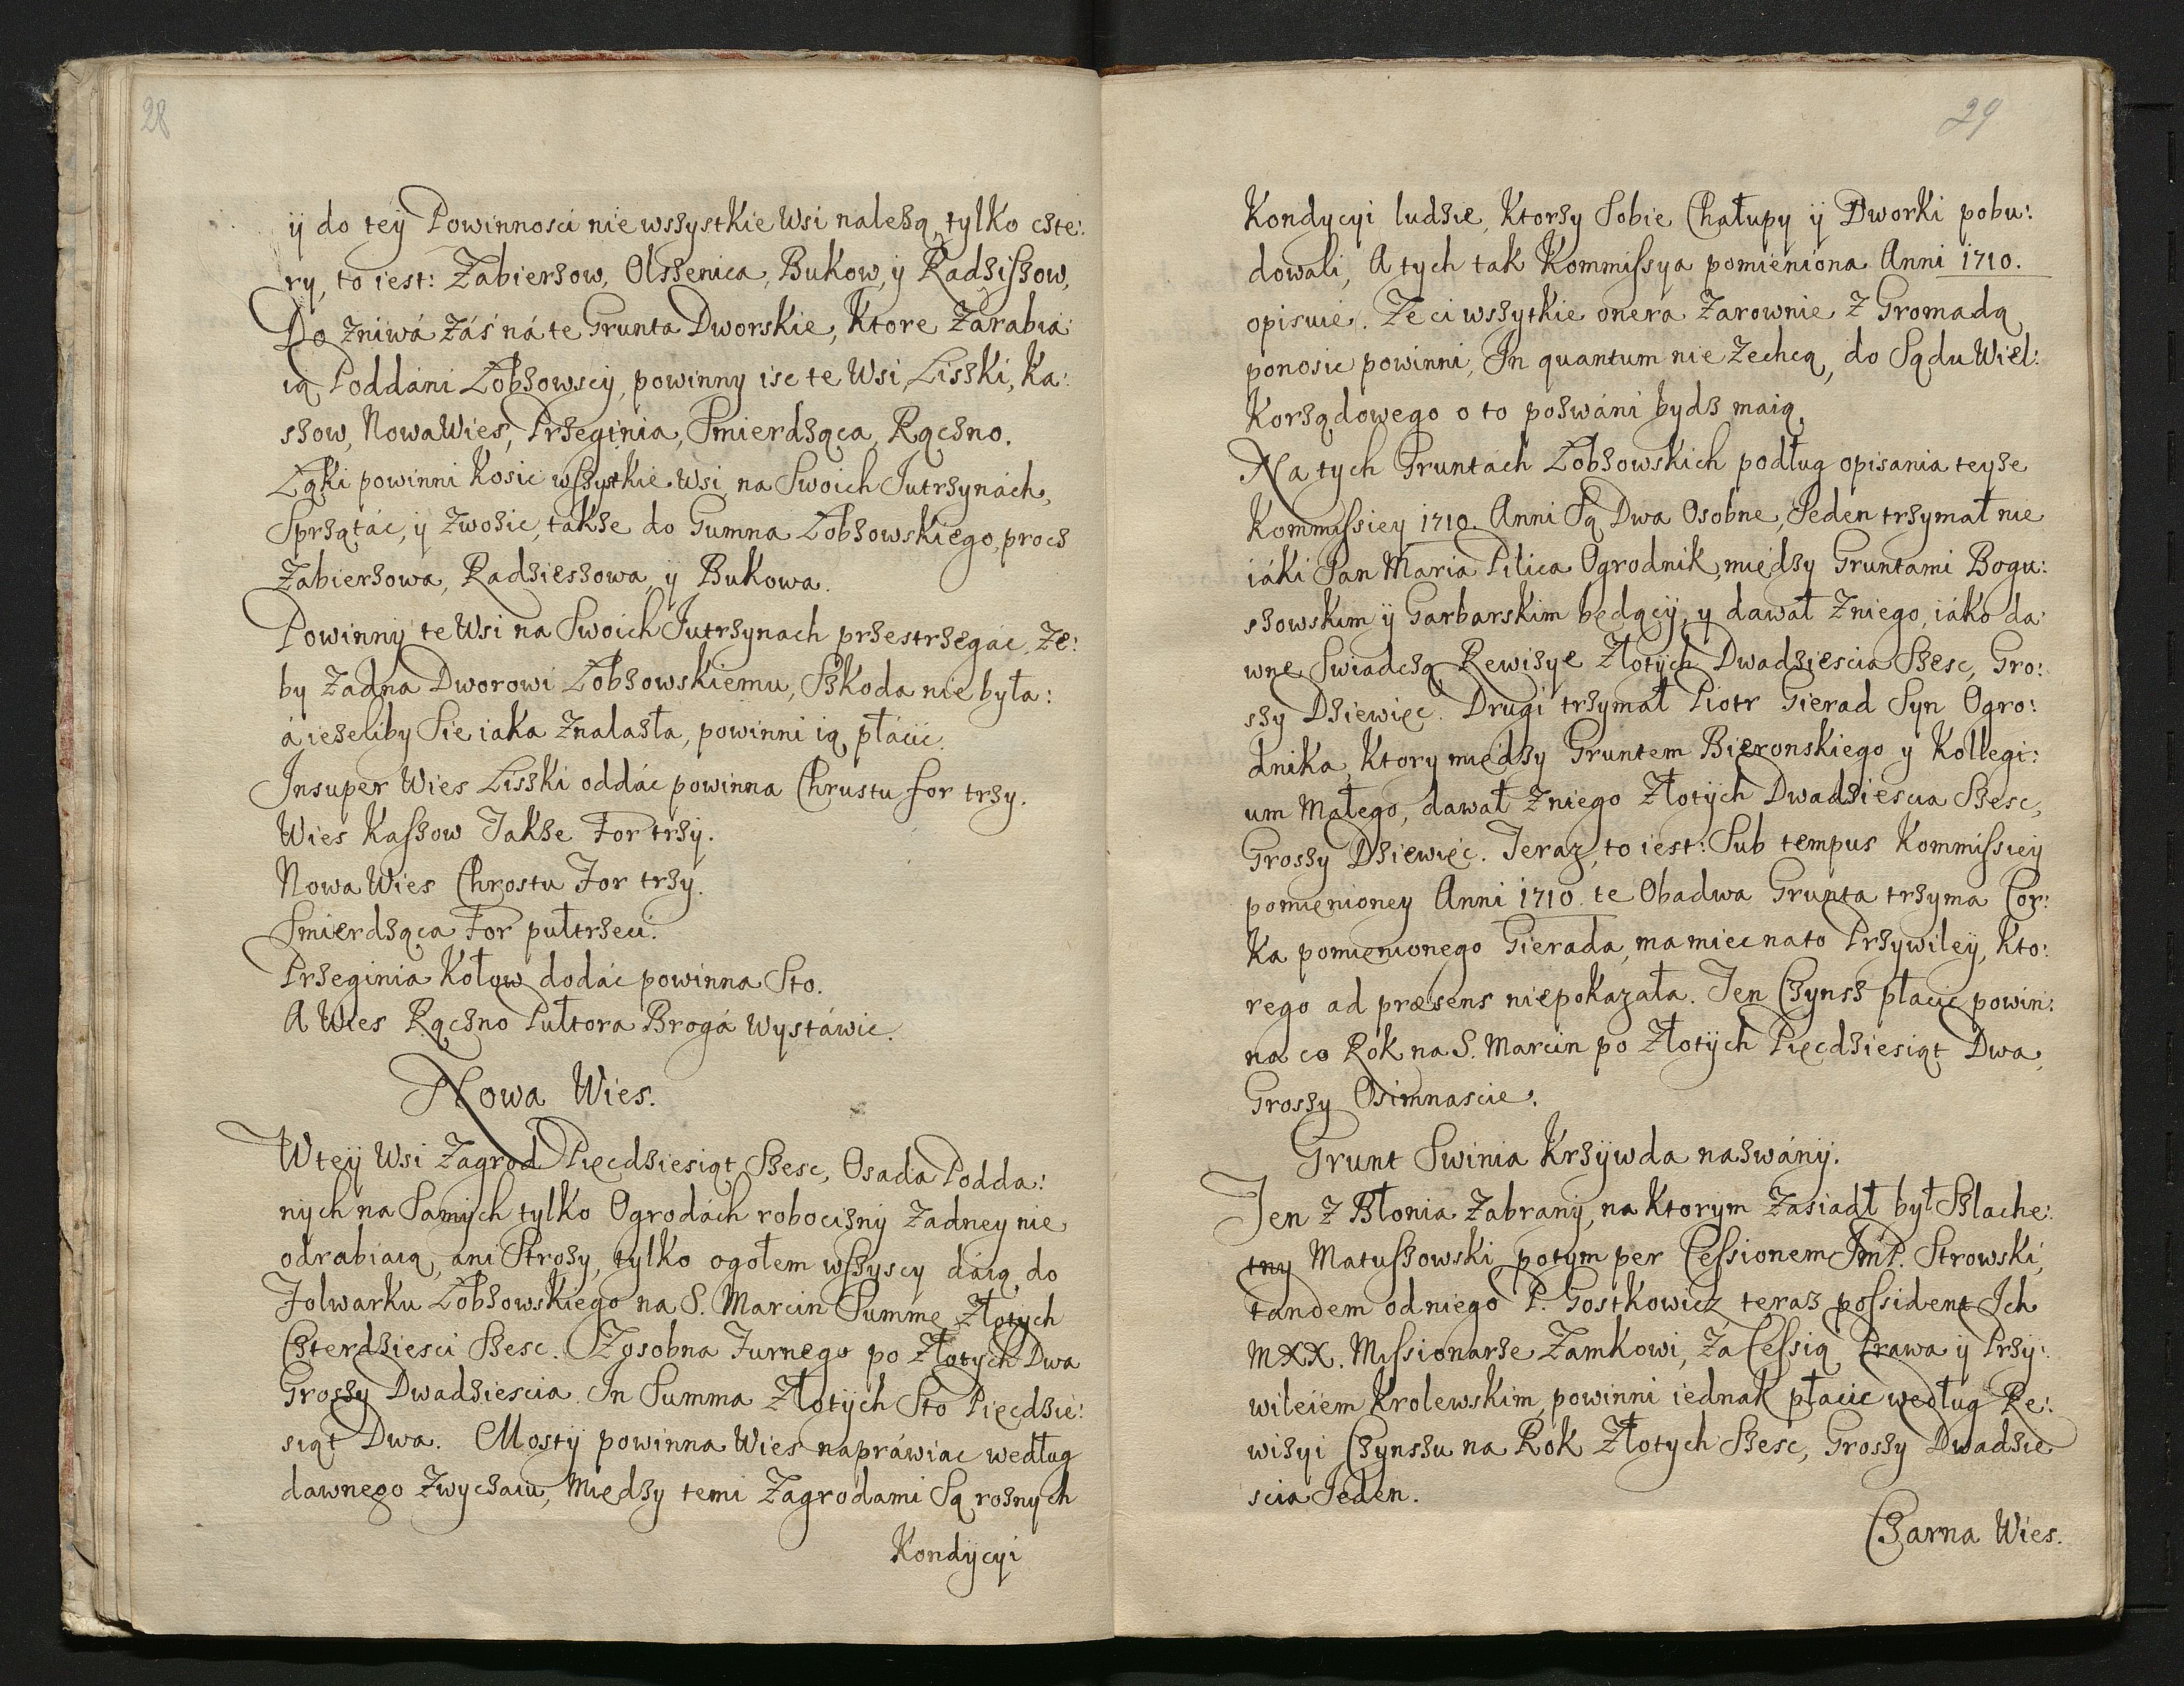 28
ÿ do teÿ Powinnosci nie wszystkie Wsi należą, tylko czte:
ry, to iest: Zabierzow, Olszenica, Bukow, ÿ Radziszow,
Do żniwá záś ná te Grunta Dworskie, Ktore Zarabia:
ią Poddáni Łobzowscÿ, powinny isc te Wsi, Liszki, Ka:
szow, Nowa Wies, Przeginia, Smierdząca, Rączno.
Łąki powinni Kosic wszystkie Wsi na Swoich Jutrzynách,
Sprzątác, ÿ Zwozic, tákze do Gumna Łobzowskiego, procz
Zabierzowa, Radzieszowa, ÿ Bukowa.
Powinnÿ te Wsi na Swoich Jutrzynach przestrzegác, Ze:
by Zadna Dworowi Łobzowskiemu, Szkoda nie była:
á iezeliby Sie iaka Znalazła, powinni ią płácic.
Insuper Wies Liszki oddác powinna Chrustu for trzy.
Wies Kaszow Takze For trzÿ.
Nowa Wies Chrostu For trzy.
Smierdząca For pułtrzeci.
Przeginia Kołow dodác powinna Sto.
A Wies Rączno Pułtora Brogá Wystáwic.
Nowa Wies.
W teÿ Wsi Zagrod Pięcdziesiąt Szesc, Osada Podda:
nych na Samych tylko Ogrodách roboczizny Zadney nie
odrabiaią, ani Strozy, tylko ogołem wszyscy dáią do
Folwarku Łobzowskiego na S. Marcin Summę Złotych
Czterdziesci Szesc. Zosobna Furnego po Złotych Dwa
Groszy Dwadziescia. In Summa Złotÿch Sto Pięcdzie:
siąt Dwa. Mostÿ powinna Wies napráwiac według
dawnego Zwyczaiu, Między temi Zagrodami Są roznych
Kondycyi
29
Kondycyi ludzie, Ktorzy Sobie Chałupy ÿ Dworki pobu:
dowali, A tych tak Kommissya pomieniona Anni 1710.
opisuie. Ze ci wszytkie onera Zarownie Z Gromadą
ponosic powinni, In quantum nie Zechcą, do Sądu Wiel:
Korządowego o to pozwáni bydz maią.
Na tych Gruntach Łobzowskich podług opisania teyze
Kommissiey 1710. Anni Są Dwa Osobne, Jeden trzymał nie
iáki Jan Maria Pilica Ogrodnik, między Gruntami Bogu:
szowskim ÿ Garbarskim będącÿ, y dawał Zniego, iáko da
wne Swiadczą Rewizye Złotych Dwadziescia Szesc, Gro:
szy Dziewięc. Drugi trzymał Piotr Gierad Syn Ogro:
dnika, Ktory między Gruntem Bieronskiego y Kollegi:
um Małego, dawał Zniego Złotÿch Dwadziescia Szesc,
Groszy Dziewięc. Teraz, to iest: Sub tempus Kommissiey
pomienioney Anni 1710. te Obadwa Grunta trzyma Cor:
Ka pomienionego Gierada, ma miec nato Przywileÿ, Kto:
rego ad præsens niepokazała. Ten Czynsz płacic powin:
na co Rok na S. Marcin po Złotÿch Pięcdziesiąt Dwa,
Groszy Osimnascie.
Grunt Swinia Krzÿwda nazwánÿ.
Ten Z Błonia Zabranÿ, na Ktorym Zasiadł był Szlache:
tny Matuszowski potym per Cessionem JmP. Strowski,
tandem od niego P. Gostkowicz teraz possident Ich
MXX. Missionarze Zamkowi, Za Cessią Prawa ÿ Przÿ:
wileiem Krolewskim, powinni iednak płacic według Re:
wizyi Czynszu na Rok Złotych Szesc, Groszy Dwadzie
scia Jeden.
Czarna Wies.